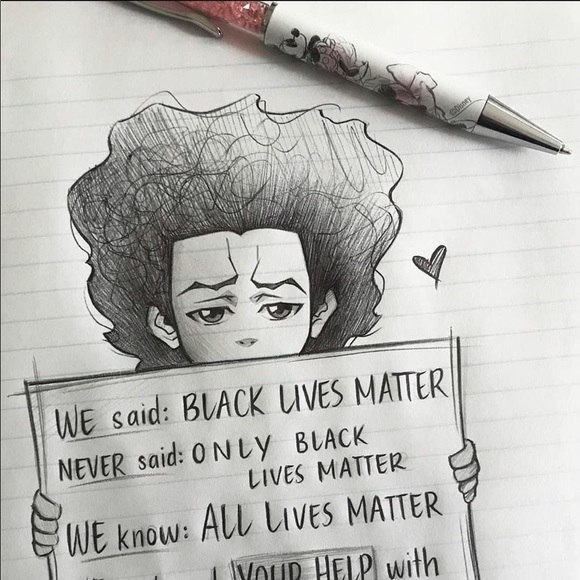 ©DISNEY
WE said: BLACK LIVES MATTER
NEVER said: ONLY BLACK
LIVES MATTER
WE know: ALL LIVES MATTER
YOUR HELP with